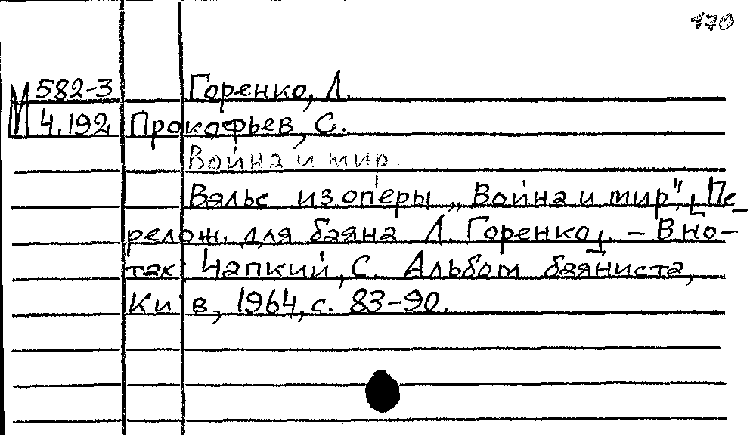 170
М 582-3 Горенко, Л.
4.192 Прокофьев, С.
Война и мир.
Вальс из оперы „Война и мир". [Пе-
релож. для баяна Л. Горенко]. – В но-
тах: Чапкий, С. Альбом баяниста,
Киів, 1964, с. 83-90.